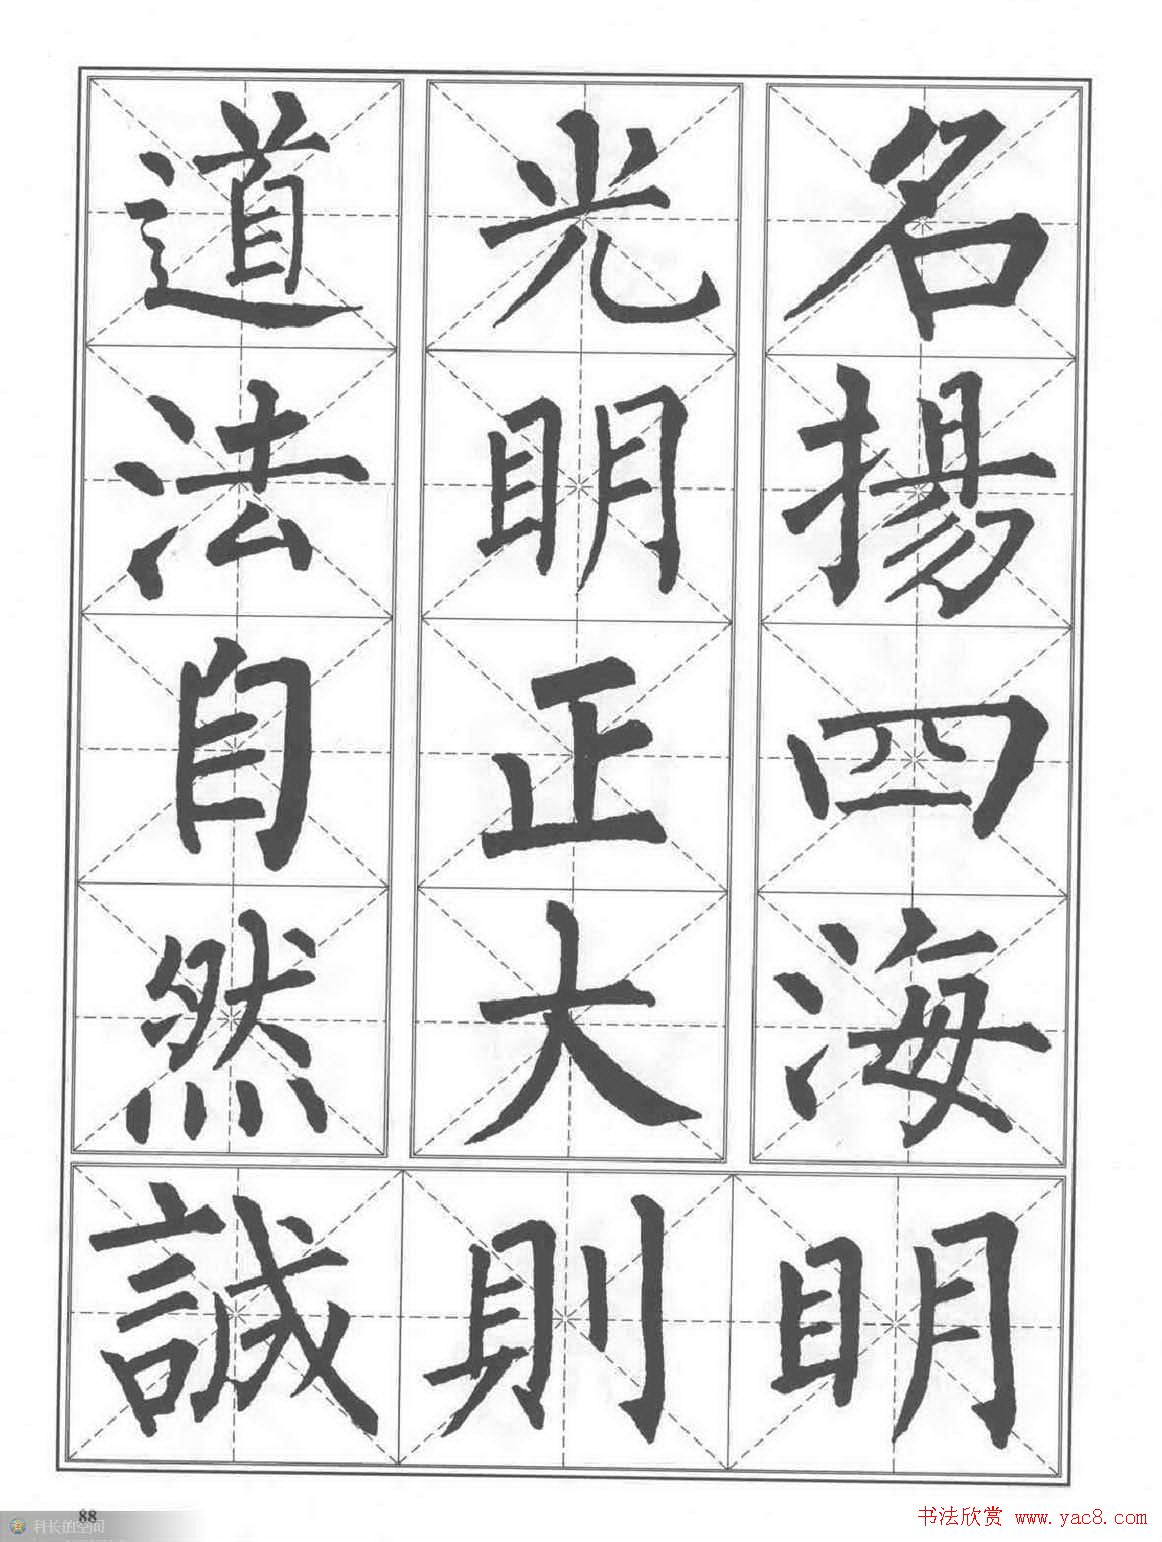 名揚四海
光明正大
道法自然
誠則明
88
科长的空间
书法欣赏 www.yac8.com